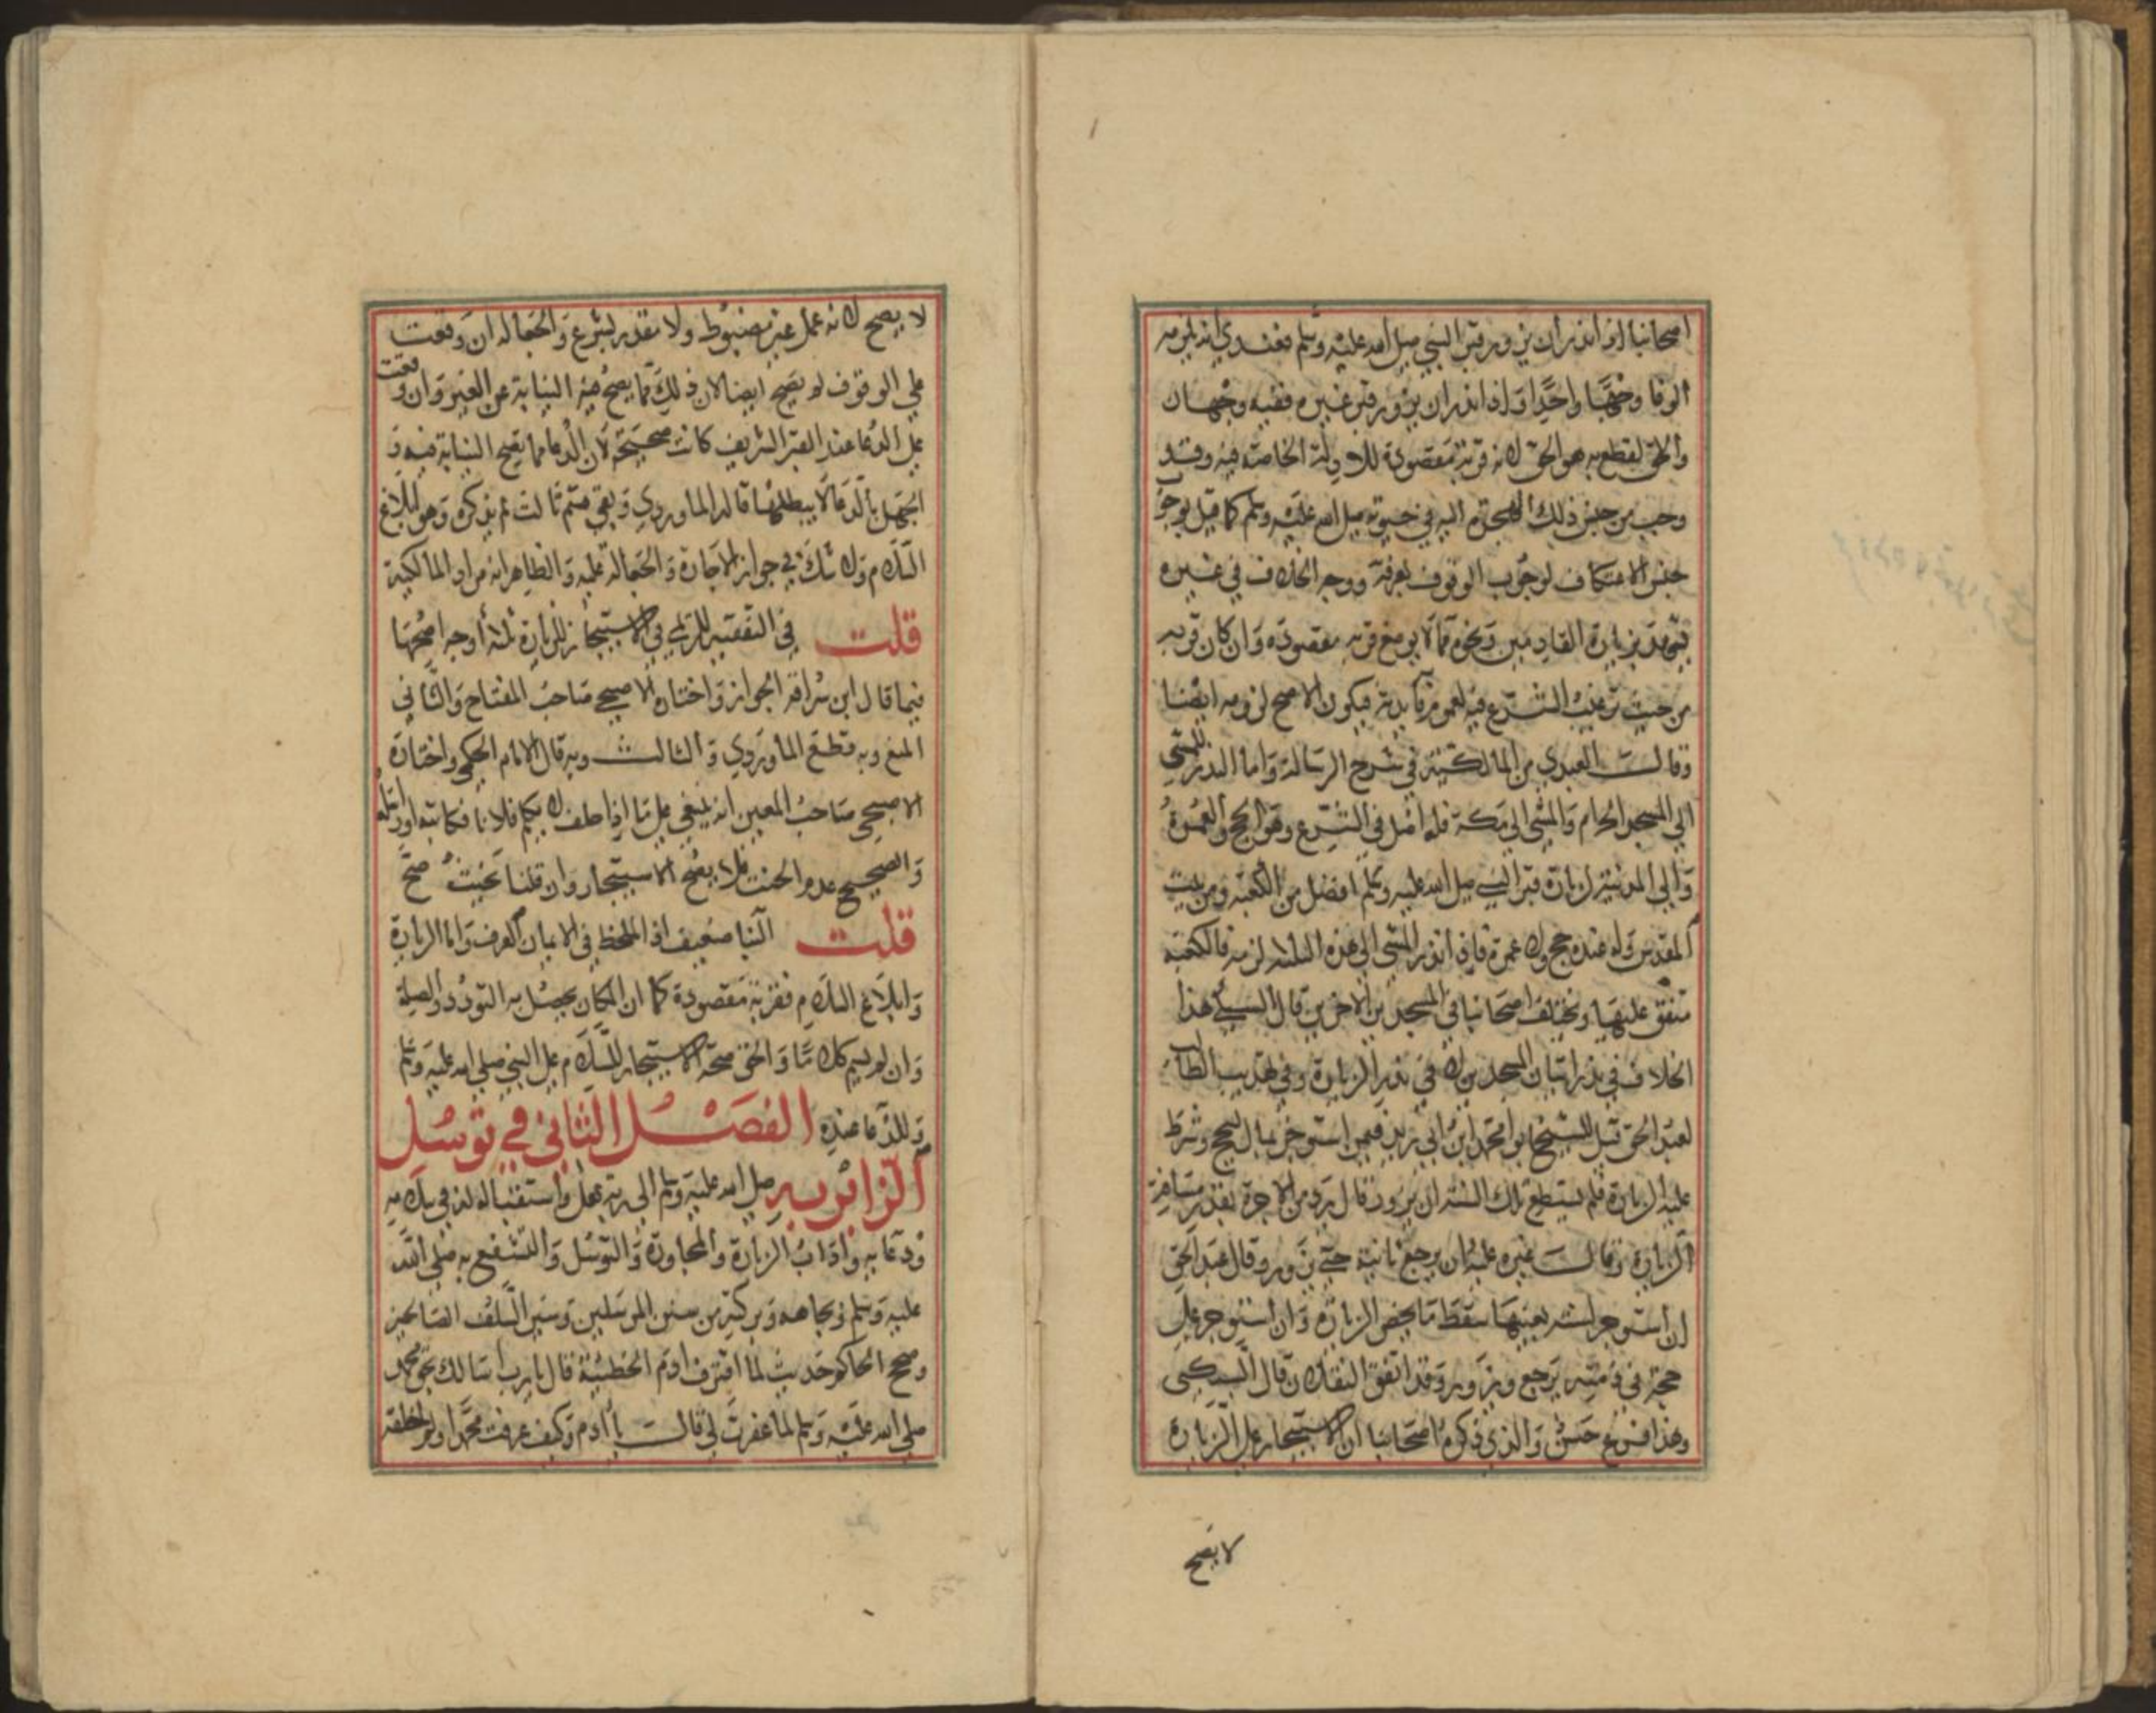 اصحابنا اذا نذر ان يزور قبر النبي صلى الله عليه وسلم فعندي انه لزمه
الوفا وجهًا واحدًا ولو نذر ان يزور قبر غيره ففيه وجهان
والقطع به هو الحق لانه قربة مقصودة للادلة الخاصة فيه وقد
وجب من جنس ذلك الهجرة اليه في حيوته صلى الله عليه وسلم كما قيل بوجو
جنس الاعتكاف لوجوب الوقوف بعرفة ووجه الخلاف في غيره
بزيارة القادمين ونحوه مما لا يوضع قربه مقصودة وان كان قربه
من حيث ترغيب الشرع فيه لعموم فايدته فيكون الاصح لزومه ايضا
وقالت العبدي من المالكية في شرح الرسالة واما النذر للمشي
الى المسجد الحرام والمشي الى مكة فله اصل في الشرع وهو الحج والعمرة
والى المدينة لزيارة قبر النبي صلى الله عليه وسلم افضل من الكعبة ومن بيت
المقدس وله عنده حج ولا عمرة فاذا نذر المشي الى هذه الثلاثه لزمه فالكعبة
متفق عليها ويختلف اصحابنا في المسجدين الاخرين قال السبكي هذا
الخلاف في نذر اتيان المسجدين لا في نذر الزيارة وفي تهذيب الطالب
لعبد الحق قيل للشيخ ابو محمد ابن ابي زيد فيمن استوجر بمال ليحج وشرط
عليه الزيارة فلم يستطع تلك السنه ان يزور قال يرد من الاجرة بقدر مسافة
الزيارة وقالت غيره عليه ان يرجع ثانية حتى يزور وقال عبد الحق
ان استوجر لسنه بعينها سقط ما يخص الزيارة وان استوجر على
حجة في ذمته يرجع ويزور وقد اتفق النقلان قال السبكي
وهذا فرع حسن والذي ذكره اصحابنا ان الاستيجار على الزيارة
لا يصح
لا يصح لانه عمل غير مضبوط ولا مقدر بشرع والجعاله ان وقعت
على الوقوف لم يصح ايضا لان ذلك مما لا يصح فيه النيابة عن الغير وان وقعت
على الدعا عند القبر الشريف كانت صحيحة لان الدعا مما يصح النيابة فيه و
الجهل بالدعا لا يبطلها قاله الماوردي وبقي قسم ثالث لم يذكره وهو ابلاغ
السلام ولا شك في جواز الاجارة والجعالة عليه والظاهر انه مراد المالكية
قلت في التفقيه للريمي في الاستيجار للزيارة ثلاثة أوجه اصحها
فيما قال ابن سراقه الجواز واختاره الاصبحي صاحب المفتاح والثاني
المنع وبه قطع الماوردي والثالث وبه قال الامام الحكمي واختاره
الاصبحي صاحب المعين انه ينبغي على ما اذا حلف لا يكلم فلانا فكاتبه او راسله
والصحيح عدم الحنث فلا يصح الاستيجار وان قلنا يحنث صح
قلت البنا ضعيف اذ الملحظ في الايمان العرف واما الزيارة
وابلاغ السلام فقربة مقصودة كما ان المكان يحصل به التودد والصلة
وان لم يسم كلاما والحق صحة الاستيجار للسلام على النبي صلى الله عليه وسلم
وللدعا عنده الفصل الثاني في توسل
الزائر به صلى الله عليه وسلم الى ربه عز وجل واستقباله له في سلامه
ودعايه واداب الزيارة والمجاورة والتوسل والتشفع به صلى الله
عليه وسلم وبجاهه وبركته من سنن المرسلين وسير السلف الصالحين
وصحح الحاكم حديث لما اقترف ادم الخطيئة قال يا رب اسالك بحق محمد
صلى الله عليه وسلم لما غفرت لي قالت يا ادم وكيف عرفت محمدا ولم اخلقه